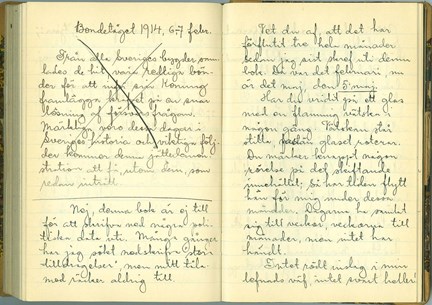 Bondetåget 1914, 6-7 febr.
Från alla Sveriges bygder sam-
lades de hit
der för att inför sin Konung
framlägga kravet på en snar
lösning af försvarsfrågan.
Märkliga voro dessa dagar i
Sveriges historia och viktiga följ-
der kommer denna
stration att få, utom dem, som
redan inträtt.
Nej, denna bok är ej till
för att skrifva ned några poli-
tiska data uti. Många gånger
har jag sökt nedskrifva stora
tilldragelser, men mitt tåla-
mod räcker aldrig till.
Vet du af, att det har
förflutit tre hela månader
sedan jag sist skref uti denna
bok. Då var det februari, nu
är det maj, den 5 maj.
Har du vridit på ett glas
med en flammig vätska
någon gång. Vätskan står
stilla, medan glaset roterar.
Du märker knappt någon
rörelse på det skiftande
innehållet. Så har tiden flytt
hän för mig under dessa
månader. Dagarna ha samlat
sig till veckor, veckorna till
månader, men intet har
händt.
Intet rödt inslag i min
lefnads väf, intet svart heller